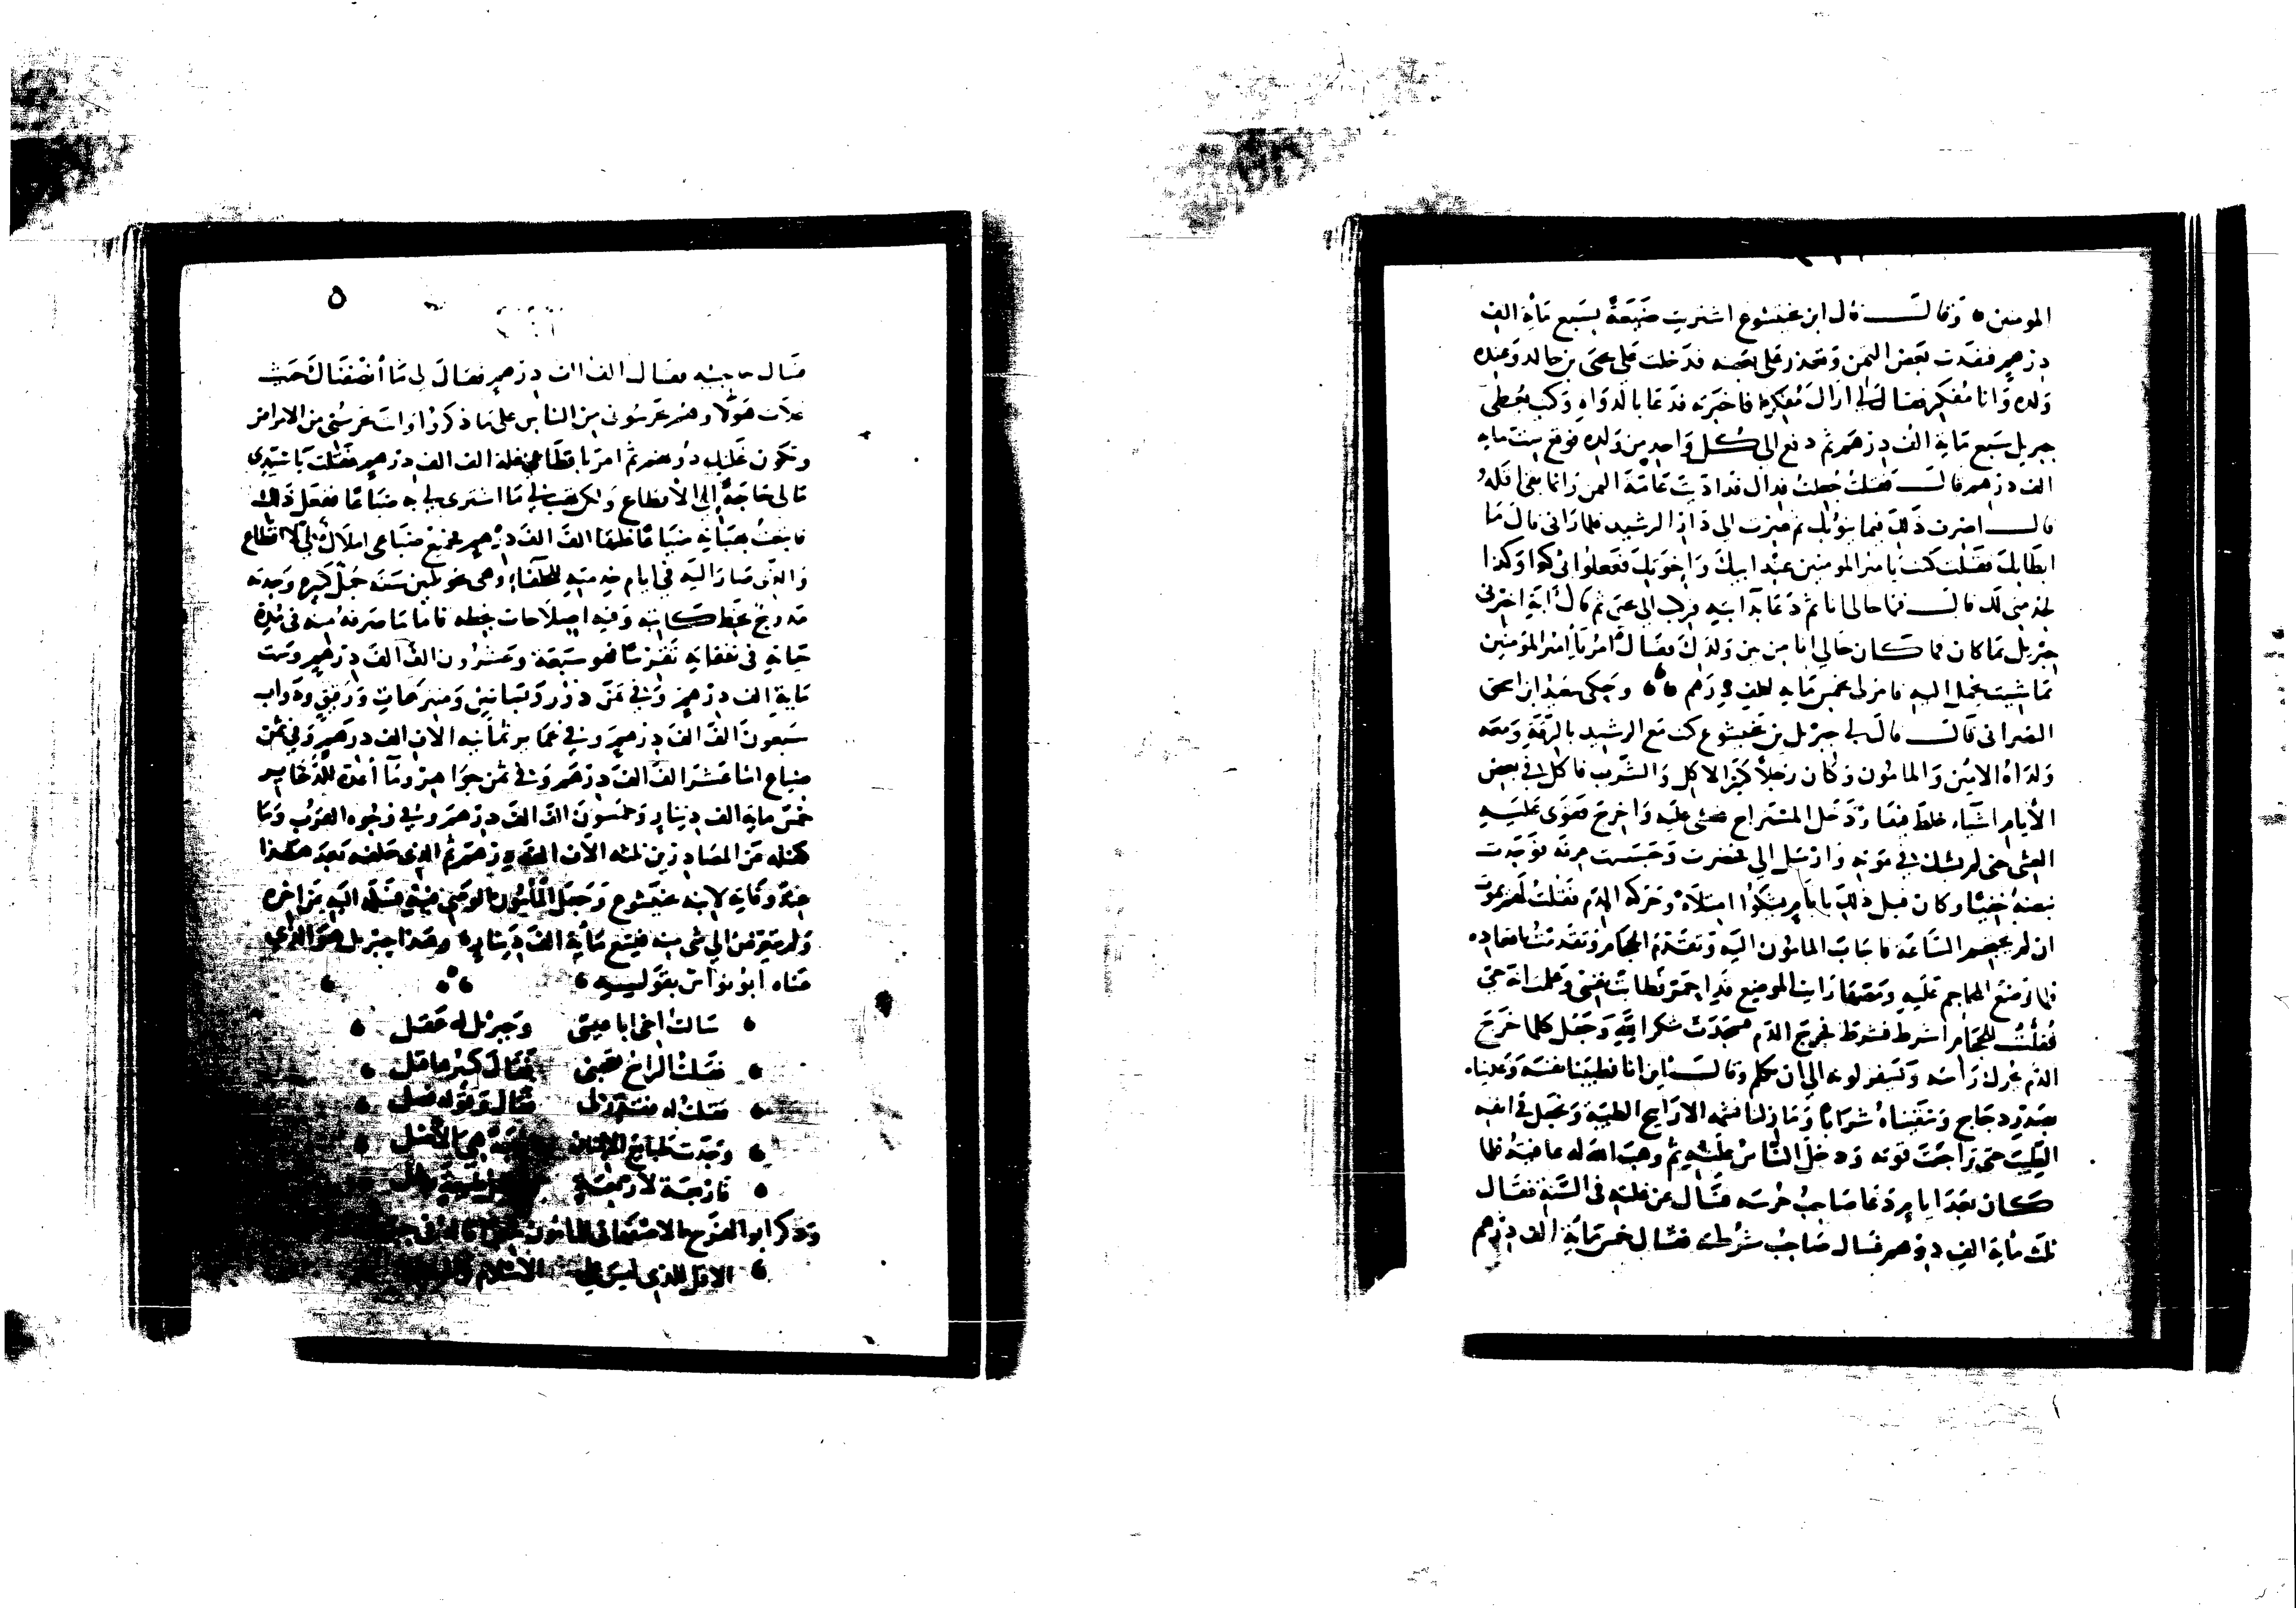 المومنين • وقالـــ قال ابن بختيشوع اشتريت ضيعة بسبع مأية الف
درهم فنقدت بعض الثمن وتعذر على بعضه فدخلت على يحيى بن خالد وعنده
ولده وانا مفكر فقال لي اراك مفكرا فاخبرته فدعا بالدواة وكتب يعطى
جبريل سبع ماية الف درهم ثم دفع الى كل واحد من ولده فوقع بثلث ماية
الف درهم قالـــ فقلت جعلت فداك قد اديت عامة الثمن وانما بقى اقله
قالـــ اصرف ذلك فيما ينوبك ثم صرت الى دار الرشيد فلما رانى قال ما
ابطا بك فقلت كنت يا امير المومنين عند ابيك واخوتك ففعلوا بى كذا وكذا
لخدمتى لك قالـــ فما حالى انا ثم دعا بدابته فركب الى يحيى ثم قال يا ابة اخبرنى
جبريل بما كان فما كان حالي انا من بين ولدك فقال مر يا امير المومنين
بما شيت يحمل اليه فامر لى بخمس ماية الف درهم ؞ وحكى سعيد ابن اسحق
النصرانى قالـــ قال لي جبريل بن بختيشوع كنت مع الرشيد بالرقة ومعه
ولداه الامين والمامون وكان رجلا كثير الاكل والشرب فاكل في بعض
الأيام اشياء خلط فيها ودخل المستراح فغشى عليه واخرج فقوى عليه
الغشى حتى لم يشك في موته وارسل الي فحضرت وجسست عرقه فوجدت
نبضه خفيا وكان قبل ذلك بايام يشكوا امتلاء وحركة الدم فقلت لهم يموت
ان لم يحجم الساعة فاجاب المامون اليه وتقدم الحجام وتقدمت باقعاده
فلما وضع المحاجم عليه ومصها رايت الموضع قد احمر فطابت نفسى وعلمت انه حى
فقلت للحجام اشرط فشرط فخرج الدم فسجدت شكرا لله وجعل كلما خرج
الدم يحرك راسه ويسفر لونه الي ان تكلم وقالـــ اين انا فطيبنا نفسه وغديناه
بصدر دجاج وسقيناه شرابا وما زلنا نشمه الاراييح الطيبة ونجعل في انفه
الطيب حتى تراجعت قوته ودخل الناس عليه ثم وهب الله له عافية فلما
كان بعد ايام دعا صاحب حرسه فسال عن غلته فى السنة فقال
ثلث مأية الف درهم فسال صاحب شرطته فقال خمس مأية الف درهم
٥
فسال حاجبه فقال الف الف درهم فقال لى ما أنصفناك حيث
غلات هولا وهم يحرسونى من الناس على ما ذكروا وانت تحرسنى من الامراض
وتكون غلتك دونهم ثم امر باقطاعي غلة الف الف درهم فقلت يا سيدى
مالى حاجة إلى الأقطاع ولكن تهب لي ما اشترى لي به ضياعا ففعل ذلك
فابتعت بهباته ضياعا غلتها الف الف درهم فجميع ضياعى املاك لي لا اقطاع
والذى صار اليه في ايام خدمته للخلفاء وهى نحو ثلثين سنة حمل كبير وجدته
مدرج بخط كاتبه وفيه اصلاحات بخطه فاما ما صرفه منه فى مدة
حياته فى نفقاته تقديرا فهو سبعة وعشرون الف الف درهم وست
ماية الف درهم وفي ثمن دور وبساتين ومنتزهات ورقيق ودواب
سبعون الف الف درهم وفي عماير ثمانية الاف الف درهم وفي ثمن
ضياع اثنا عشر الف الف درهم وفي ثمن جواهر وما اعده للذخاير
خمس ماية الف دينار وخمسون الف الف درهم وفي وجوه القرب وما
كفله عن المصادرين ثلثة الاف الف درهم ثم الذى خلفه بعد هكذا
وصاية لابنه بختيشوع وجعل المأمون الوصى فسلمه اليه عن اخره
ولم يتعرض الي شى منه فبتسع مأية الف دينار • وهذا جبريل هو الذى
عناه ابو نواس بقوله •
• سالت اخى ابا عيسى وجبريل له عقل •
• فقلت الراح تعجبنى فقال كثيرها قتل •
• فقلت له فقدر لى فقال وقوله فصل •
• وجدت طبايع الانسان اربعة هي الأصل •
• فاربعة لاربعة لكل طبيعة رطل
وذكر ابو الفرج الاصفهانى
• الا قل للذى ليس على الاسلام